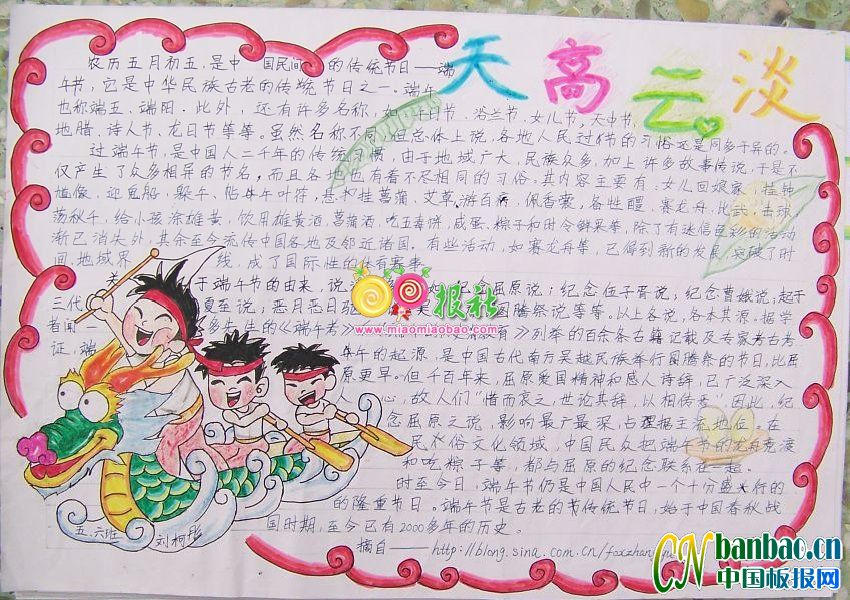 天高云淡
农历五月初五,是中 国民间 的传统节日——端
午节,它是中华民族古老的传统节日之一。端午
也称端五、端阳。此外,还有许多名称,如 午日节、浴兰节、女儿节,天中节,
地腊、诗人节、龙日节等等。虽然名称不同,但总体上说,各地人民过 节的习俗还是同多于异的。
过端午节,是中国人二千年的传统习惯,由于地域广大,民族众多,加上许多故事传说,于是不
仅产生了众多相异的节名,而且各地也有着不尽相同的习俗。其内容主要有:女儿回娘家,挂钟
馗像,迎鬼船、躲午、帖午叶符,悬挂菖蒲、艾草,游百病,佩香囊,备牲醴,赛龙舟,比武,击球,
荡秋千,给小孩涂雄黄,饮用雄黄酒、菖蒲酒,吃五毒饼、咸蛋、粽子和时令鲜果等,除了有迷信色彩的活动
渐已消失外,其余至今流传中国各地及邻近诸国。有些活动,如赛龙舟等,已得到新的发展,突破了时
间,地域界 线,成了国际性的体育赛事。
关 于端午节的由来,说 纪念屈原说;纪念伍子胥说;纪念曹娥说;起于
三代 夏至说;恶月恶日驱 图腾祭说等等。以上各说,各本其源。据学
者闻一 多先生的《端午考》 列举的百余条古籍记载及专家考古考
证,端 午的起源,是中国古代南方吴越民族举行图腾祭的节日,比屈
原更早。但千百年来,屈原爱国精神和感人诗辞,已广泛深入
人 心,故人们“惜而哀之,世论其辞,以相传焉”,因此,纪
念屈原之说,影响最广最深,占据主流地位。在
民俗文化领域,中国民众把端午节的龙舟竞渡
和吃粽子等,都与屈原的纪念联系在一起。
时至今日,端午节仍是中国人民中一个十分盛行的
的隆重节日。端午节是古老的传统节日,始于中国春秋战
国时期,至今已有2000多年的历史。
摘自——http://blong.sina.com.cn/foxzhan
五.六班 刘柯彤
报社
www.miaomiaobao.com
CN banbao.cn
中国板报网